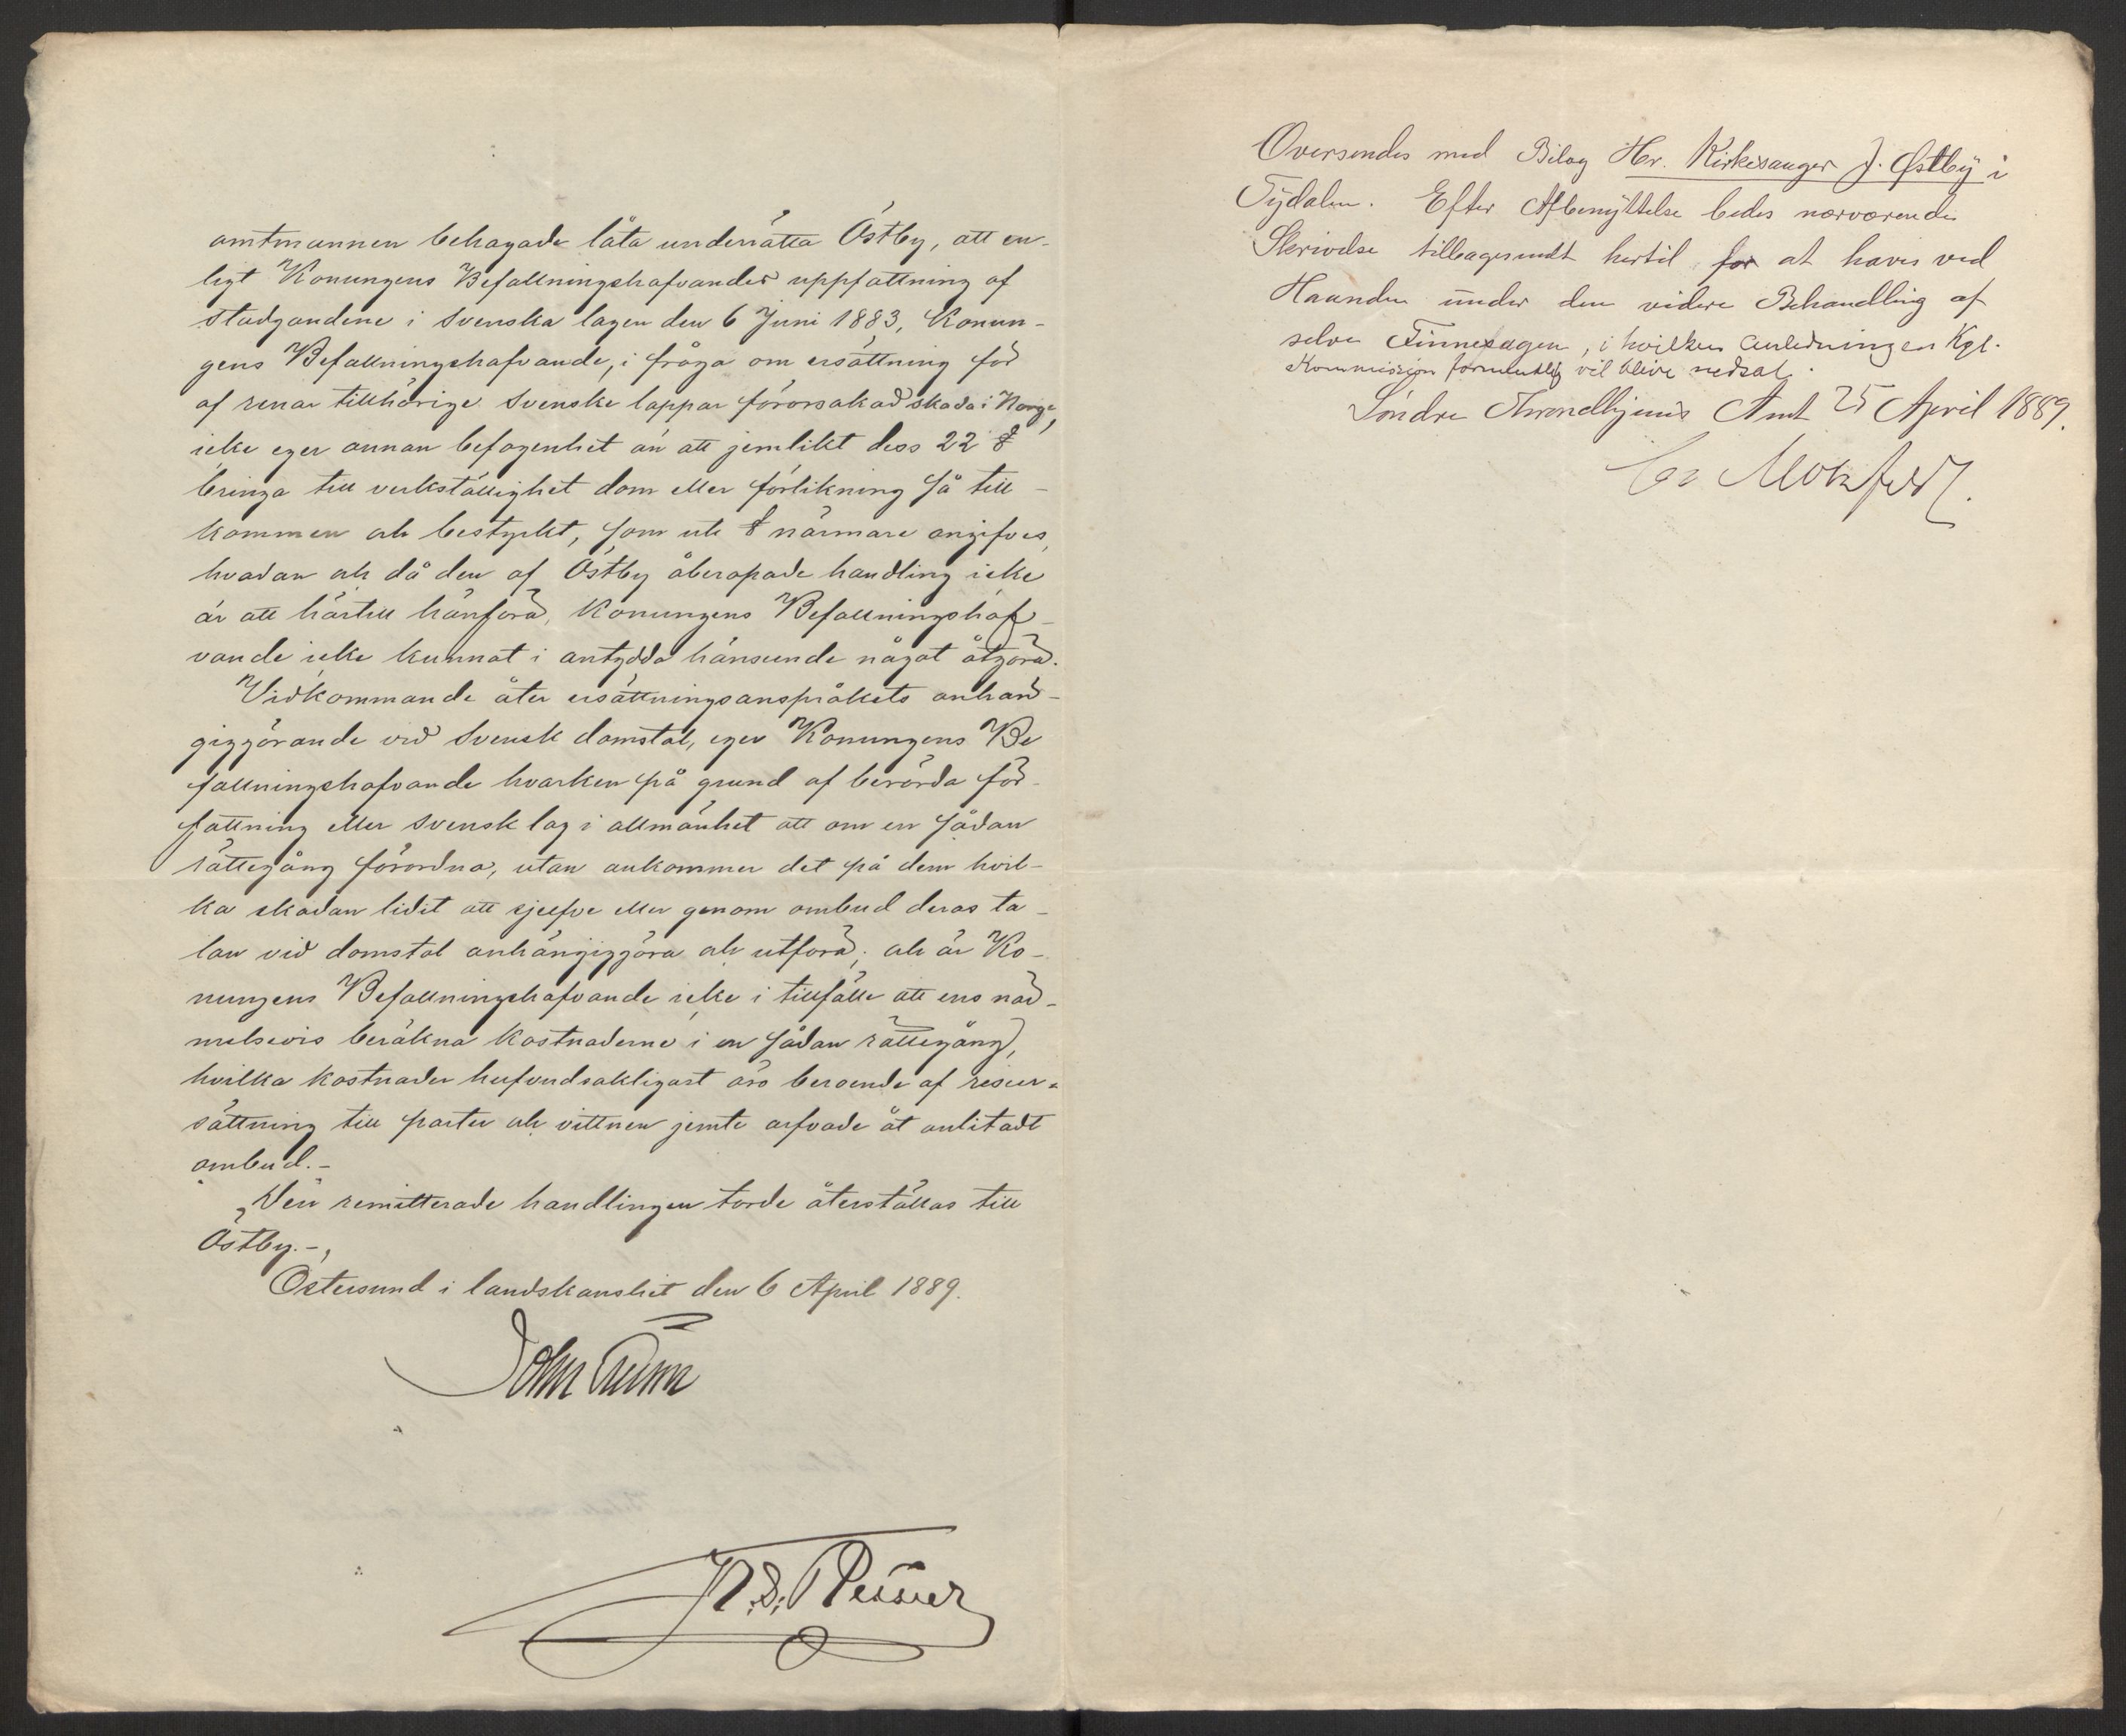 amtmannen behagade låta underrätta Östby, att en-
ligt Konungens Befallningshafvandes uppfattning af
stadgandene i Svenska lagen den 6 Juni 1883, Konun-
gens Befallningshafvande, i fråga om ersättning för
af renar tillhörige Svenske lappar förorsakad skada i Norge,
icke eger annan befogenhet än att jemlikt dess 22 §
bringa till verkställighet dom eller förlikning så till-
kommen och bestyrkt, som uti § närmare angifves,
hvadan och då den af Östby åberopade handling icke
är att härtill hänföra, Konungens Befallningshaf-
vande icke kunnat i antydda hänseende något åtgöra.
Vidkommande åter ersättningsanspråkets anhän-
giggörande vid Svensk domstol, eger Konungens Be
fallningshafvande hvarken på grund af berörda för-
fattning eller Svensk lag i allmänhet att om en sådan
rättegång förordna, utan ankommer det på dem hvil-
ka skadan lidit att sjelfve eller genom ombud deras ta-
lan vid domstol anhängiggöra och utföra; och är Ko-
nungens Befallningshafvande icke i tillfälle att ens när-
melsevis beräkna kostnaderne i en sådan rättegång,
hvilka kostnader hufvudsakligast äro beroende af reseer-
sättning till parter och vittnen jemte arfvode åt anlitadt
ombud.-
Den remitterade handlingen torde återställas till
Östby.-,
Östersund i landskansliet den 6 April 1889.
John
Oversendes med Bilag Hr. Kirkesanger J. Østby i
Tydalen. Efter Afbenyttelse bedes nærværende
Skrivelse tilbagesendt hertil for at haves ved
Haanden under den videre Behandling af
selve Finnesagen, i hvilken Anledning en Kgl.
Kommission formentlig vil blive nedsat.
Söndre Throndhjems Amt 25 April 1889.